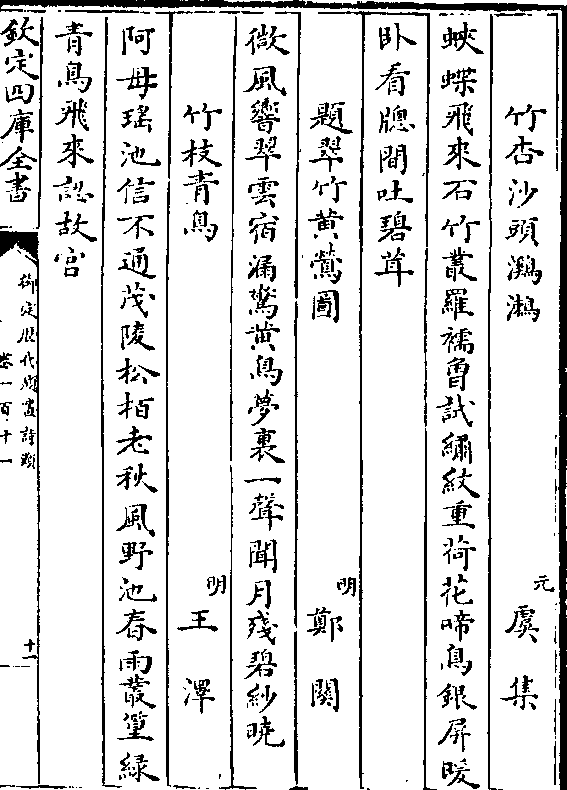 竹杏沙頭鸂鶒 元 虞集
蛺蝶飛來石竹叢羅襦曾試繡紋重荷花啼鳥銀屏暖
卧看牕間吐碧茸
題翠竹黄鶯圖 明 鄭關
微風響翠雲宿漏驚黄鳥夢裏一聲聞月殘碧紗曉
竹枝青鳥 明 王澤
阿母瑤池信不通茂陵松栢老秋風野池春雨叢篁緑
青鳥飛來認故宫
欽定四庫全書
御定歴代題畫詩類
卷一百十一
十一